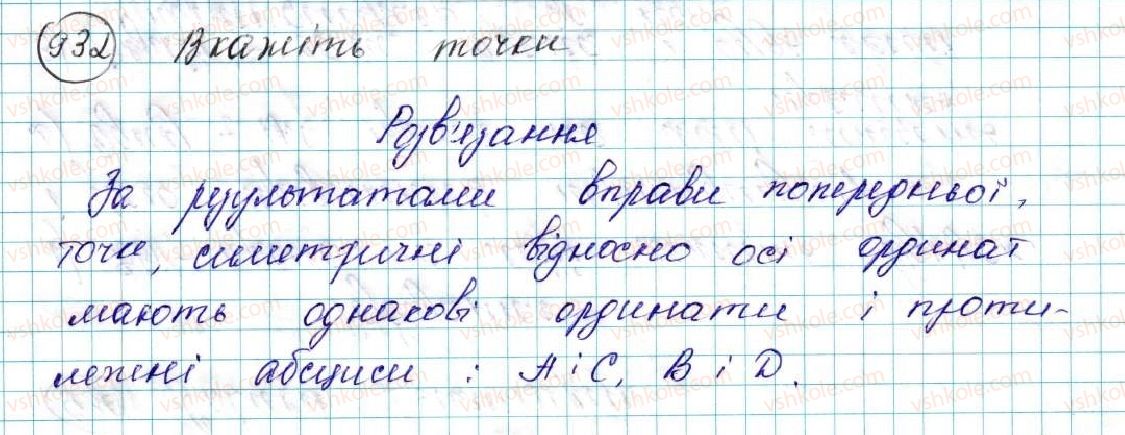 932 Вкажіть точки
Розв'язання
За результатами вправи попередньої,
точки, симетричні відносно осі ординат
мають однакові ординати і проти-
лежні абсциси : А і С, В і D.